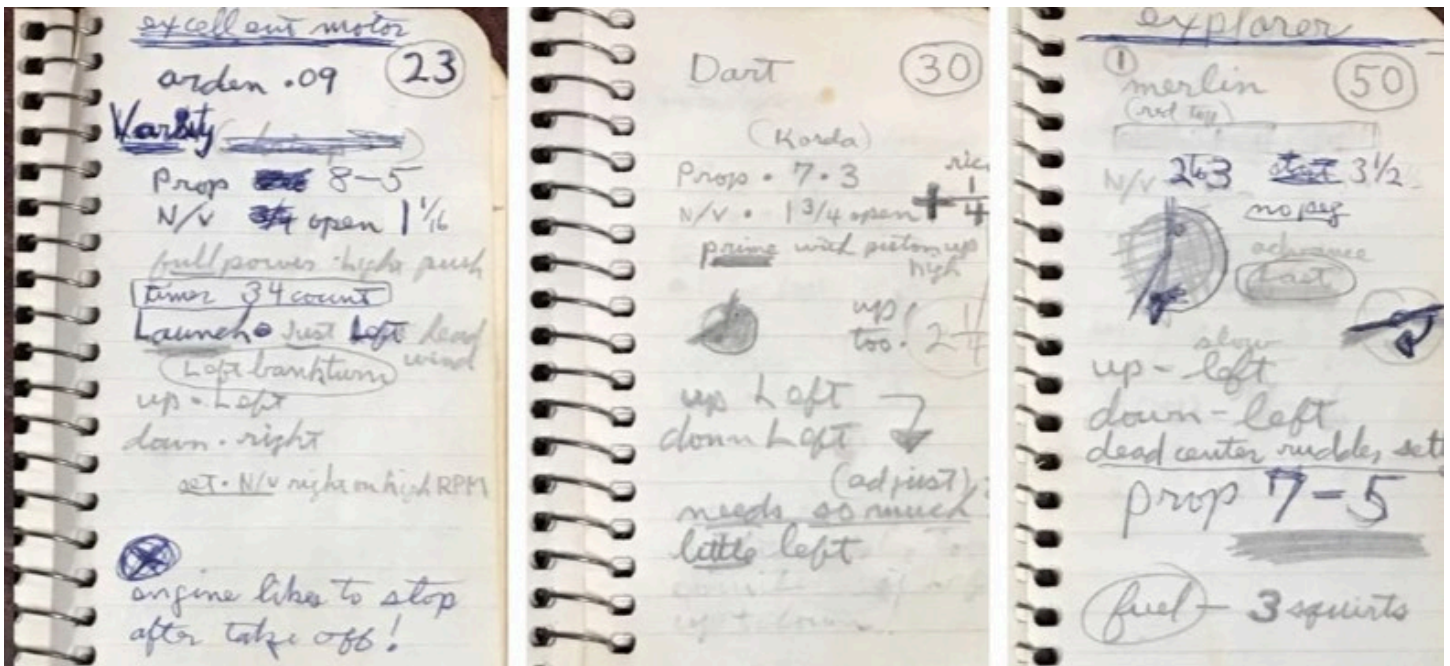 excellent motor
23
arden .09
Varsity
Prop 8-5
N/V 3/4 open 1 1/16
full power - high push
timer 34 count
Launch • Just Left dead
wind
Left bank turn
up • Left
down • right
set • N/V right on high RPM
engine likes to stop
after take off!
Dart
30
(Korda)
Prop • 7 • 3
N/V • 1 3/4 open + 1/4
prime with piston up
high
up
too • 2 1/4
up Left
down Left
(adjust)
needs so much
little left
up + down
explorer
1
50
merlin
(red top)
N/V 2 to 3 3 1/2
no peg
advance
Last
slow
up - left
down - left
dead center rudder
prop 7-5
fuel - 3 squirts